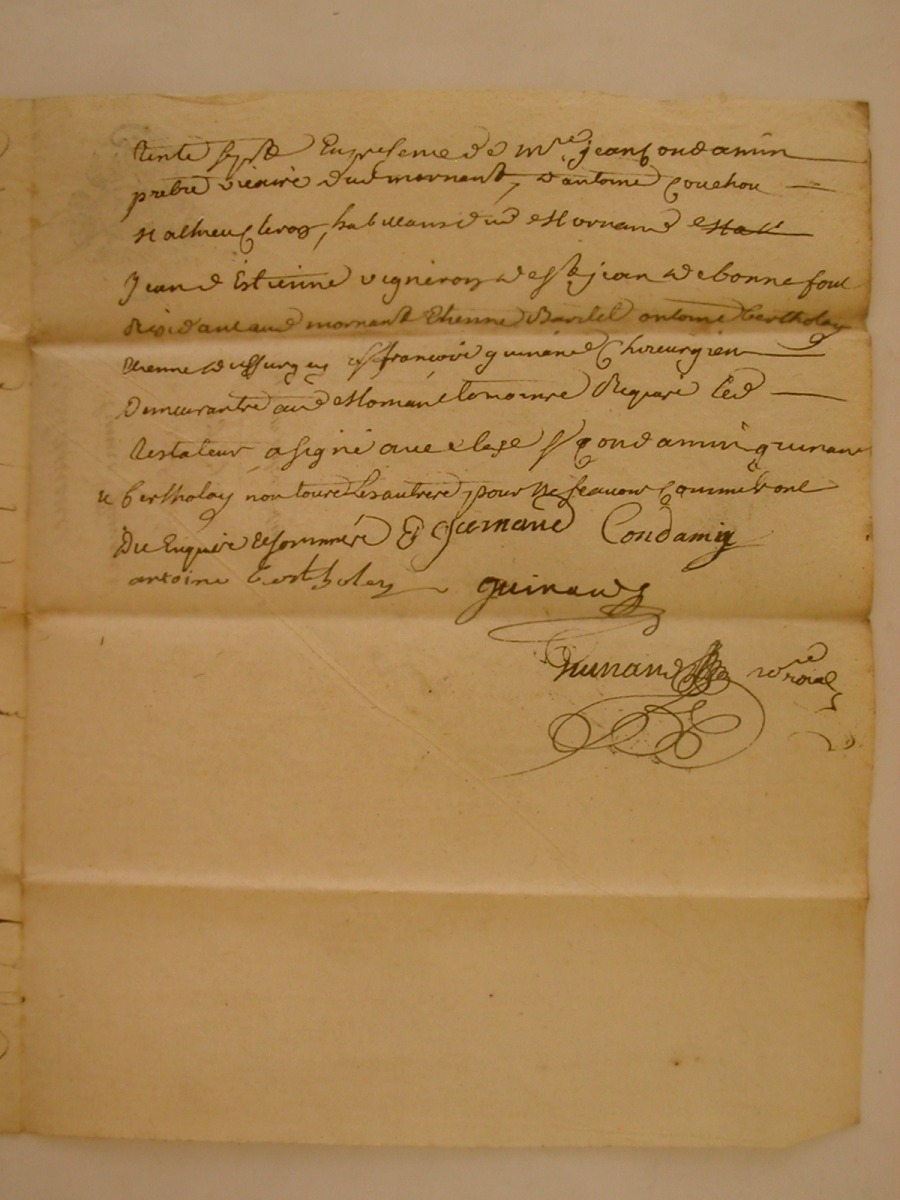 trente sept En presence de mre jean Condamin
prebtre vicaire dud mornant, d'antoine Couchou
Mathieu Cleroy, habitans dud Mornand
Jean d'Estienne vigneron de St jean de bonnefont
Residant aud mornant Etienne Bardel antoine bertholay
etienne et francois guinand Chireurgien
Demeurants aud Mornant temoins Requis Led
testateur a signé avec Led Sr Condamin guinand
et bertholay non tous les autres pour ne scavoir comme ont
Dit Enquis et sommés Condamin
antoine bertholay guinand
Guinand nre roial